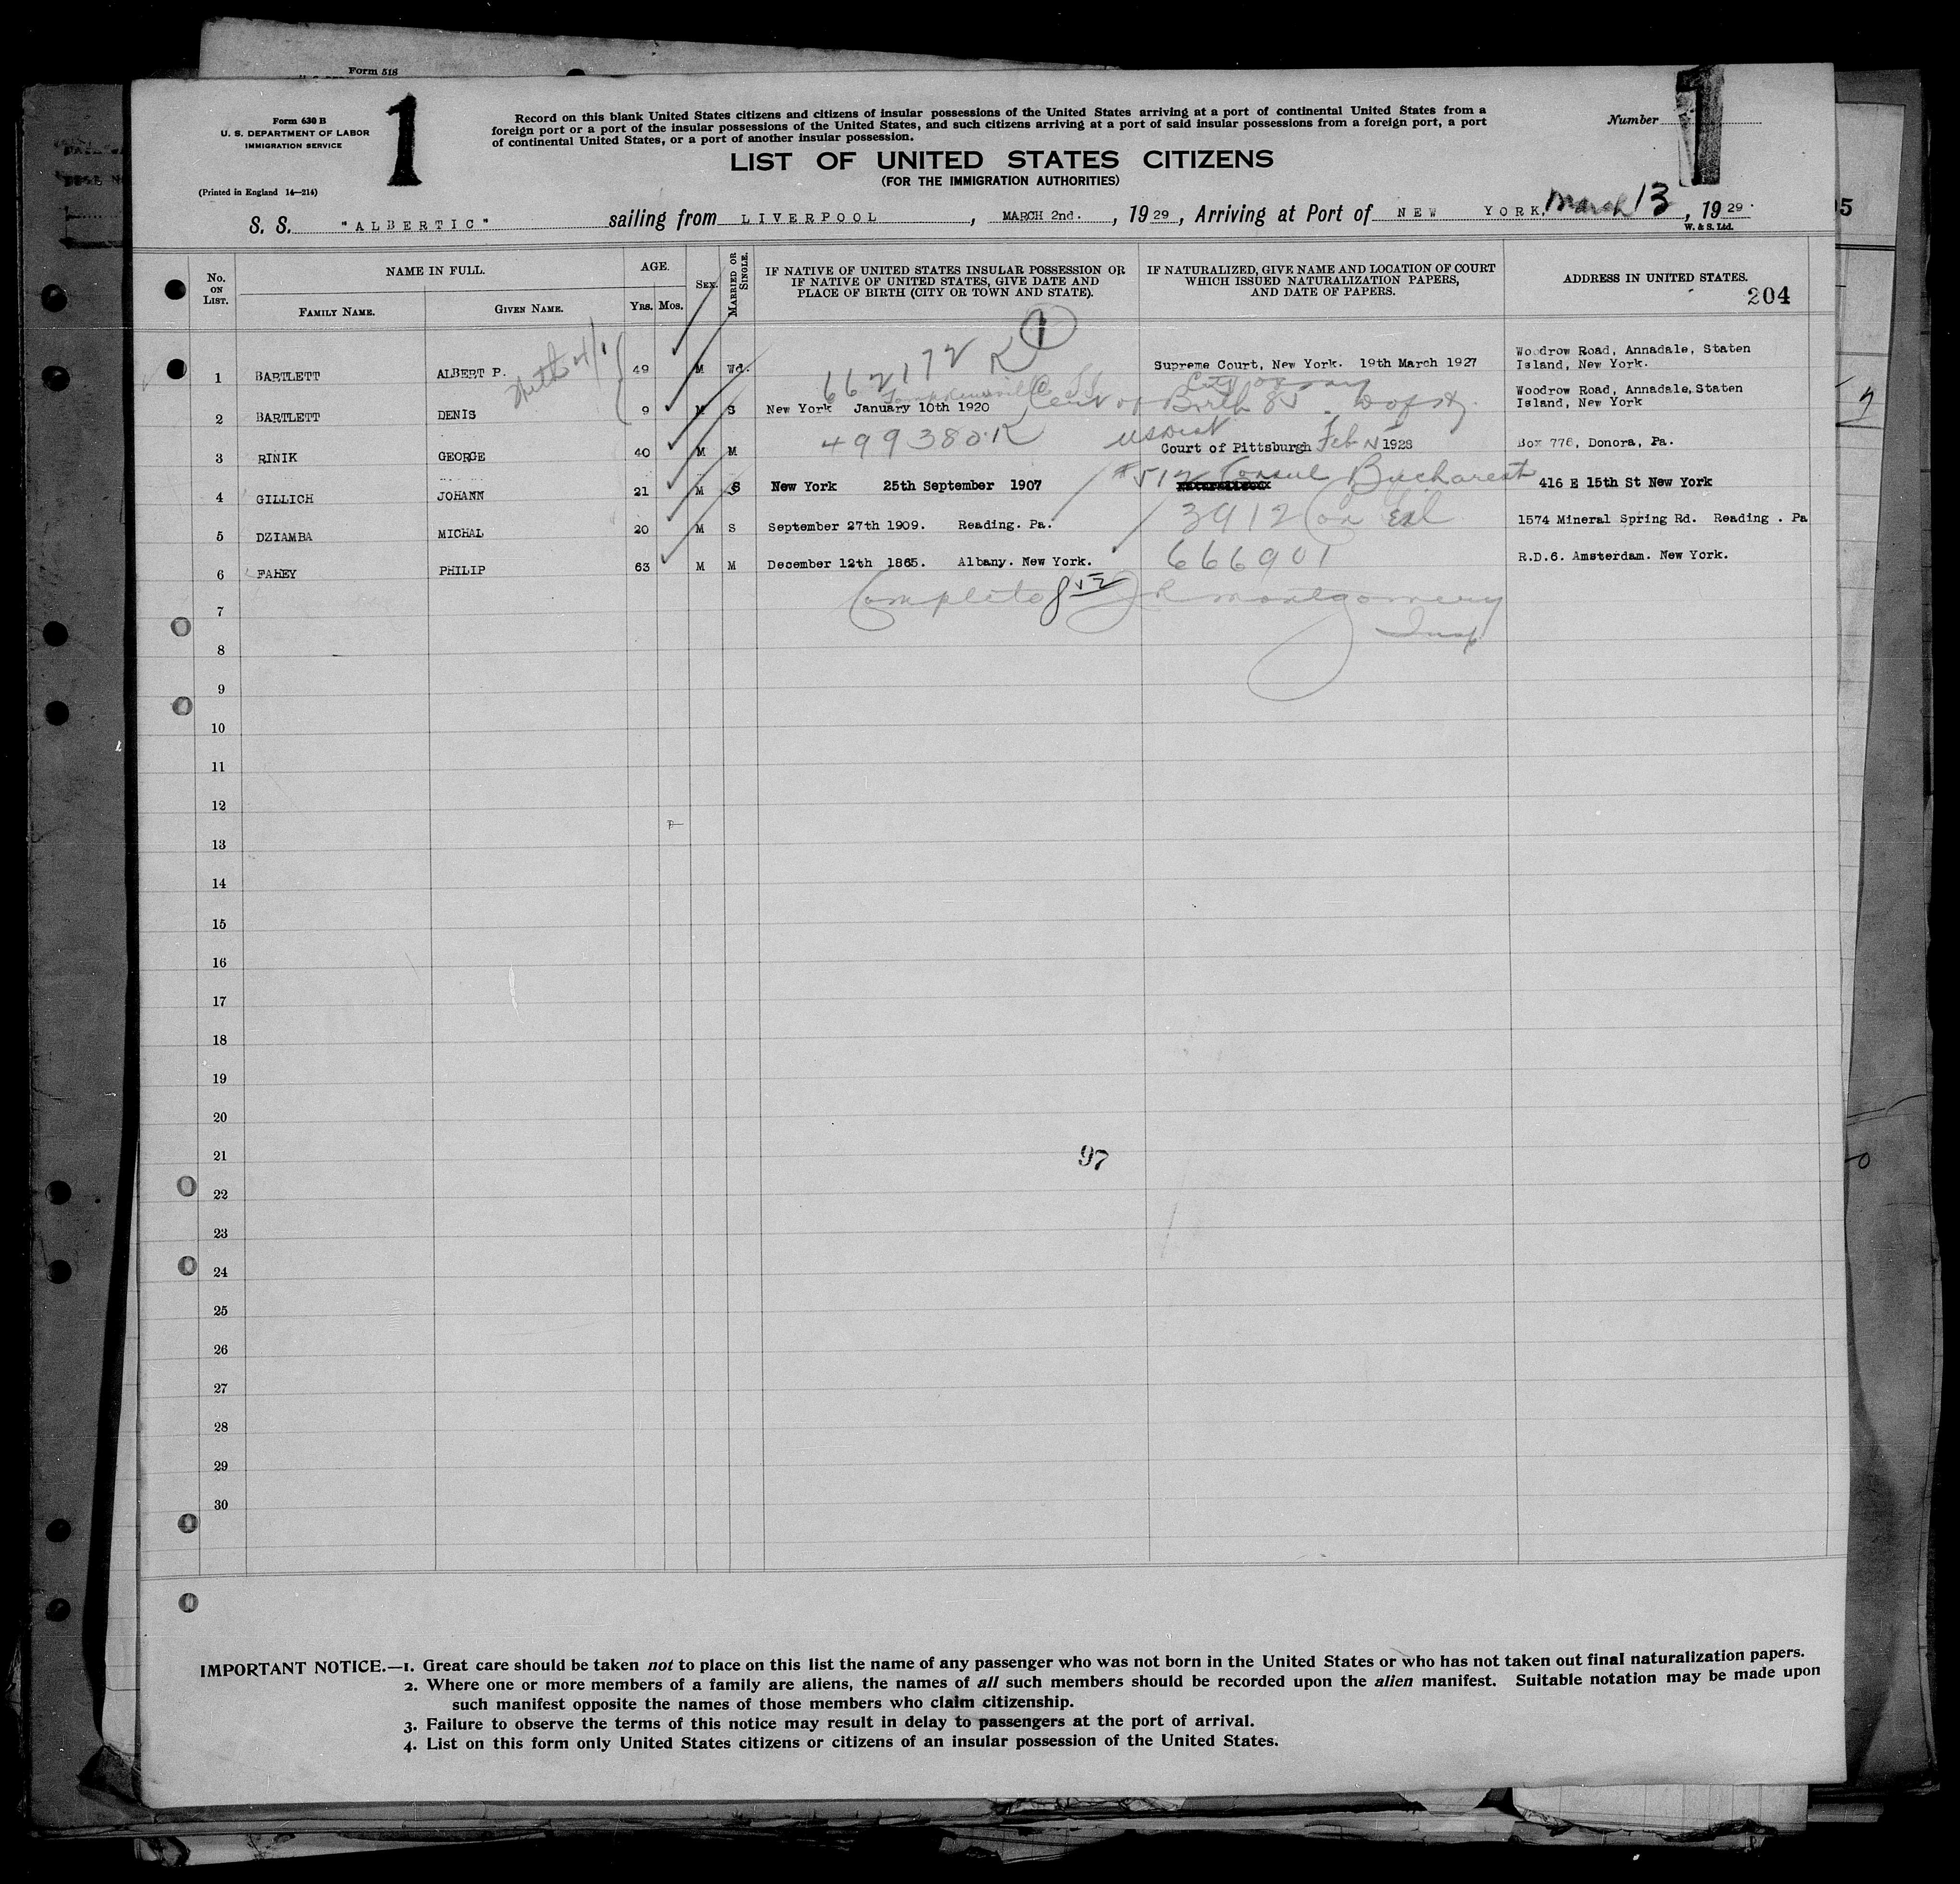 Form 518
Form 630 B
U. S. DEPARTMENT OF LABOR
IMMIGRATION SERVICE
(Printed in England 14—214)
1
Record on this blank United States citizens and citizens of insular possessions of the United States arriving at a port of continental United States from a
foreign port or a port of the insular possessions of the United States, and such citizens arriving at a port of said insular possessions from a foreign port, a port
of continental United States, or a port of another insular possession.
Number 1
LIST OF UNITED STATES CITIZENS
(FOR THE IMMIGRATION AUTHORITIES)
S. S. "ALBERTIC" sailing from LIVERPOOL, MARCH 2nd., 1929, Arriving at Port of NEW YORK. March 13, 1929.
W. & S. Ltd.
No. ON LIST. NAME IN FULL. FAMILY NAME. GIVEN NAME. AGE. Yrs. Mos. SEX. MARRIED OR SINGLE.
IF NATIVE OF UNITED STATES INSULAR POSSESSION OR
IF NATIVE OF UNITED STATES, GIVE DATE AND
PLACE OF BIRTH (CITY OR TOWN AND STATE).
IF NATURALIZED, GIVE NAME AND LOCATION OF COURT
WHICH ISSUED NATURALIZATION PAPERS,
AND DATE OF PAPERS.
ADDRESS IN UNITED STATES.
204
1
662172 K
1 BARTLETT ALBERT P. 49 M Wd. Supreme Court, New York. 19th March 1927 Woodrow Road, Annadale, Staten
Island, New York.
Cert of Birth 85
2 BARTLETT DENIS 9 M S New York January 10th 1920 Woodrow Road, Annadale, Staten
Island, New York
499380 K
3 RINIK GEORGE 40 M M US Dist Court of Pittsburgh Feb 1928 Box 776, Donora, Pa.
#512 Consul Bucharest
4 GILLICH JOHANN 21 M S New York 25th September 1907 416 E 15th St New York
3912
5 DZIAMBA MICHAL 20 M S September 27th 1909. Reading. Pa. 1574 Mineral Spring Rd. Reading . Pa
666901
6 FAHEY PHILIP 63 M M December 12th 1865. Albany. New York. R.D.6. Amsterdam. New York.
Complete J R Montgomery
Insp
7
8
9
10
11
12
13
14
15
16
17
18
19
20
21
97
22
23
24
25
26
27
28
29
30
IMPORTANT NOTICE.—1. Great care should be taken not to place on this list the name of any passenger who was not born in the United States or who has not taken out final naturalization papers.
2. Where one or more members of a family are aliens, the names of all such members should be recorded upon the alien manifest. Suitable notation may be made upon
such manifest opposite the names of those members who claim citizenship.
3. Failure to observe the terms of this notice may result in delay to passengers at the port of arrival.
4. List on this form only United States citizens or citizens of an insular possession of the United States.